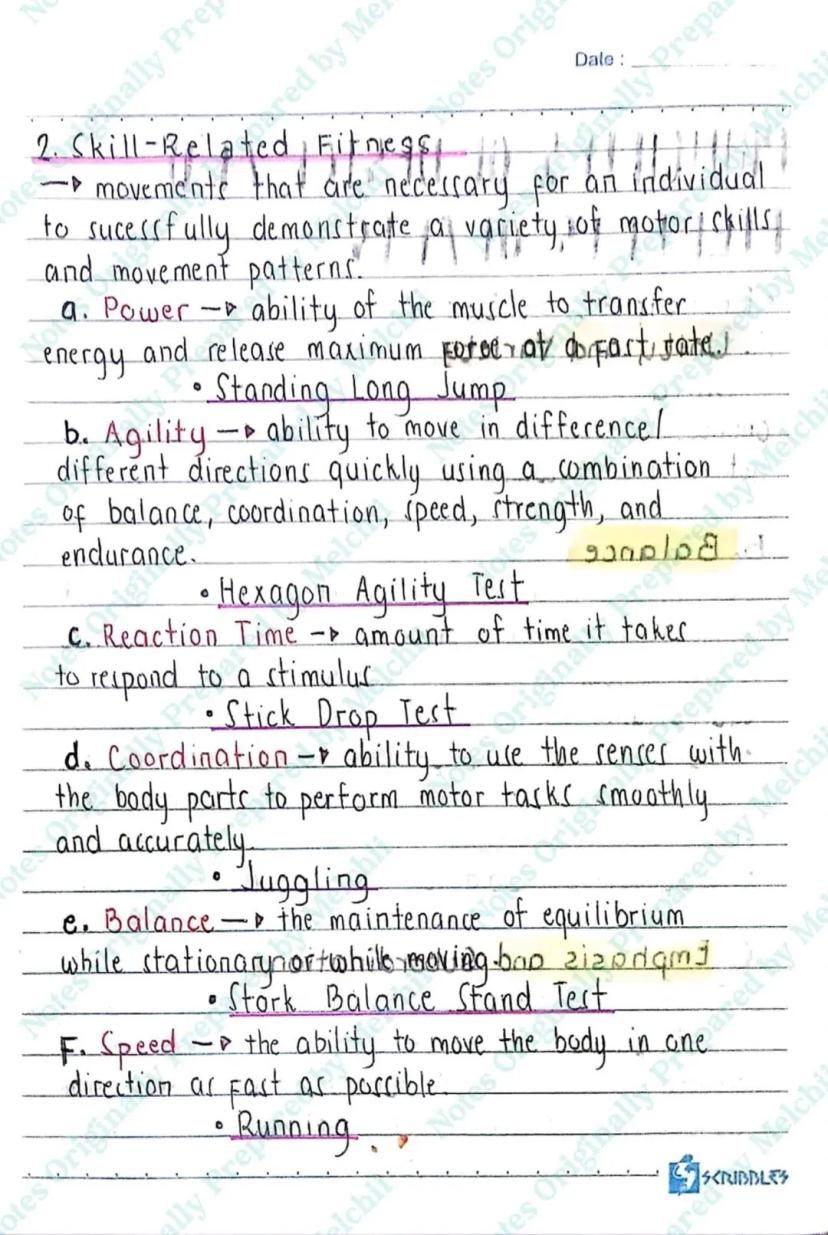 Date :
2. Skill-Related Fitness
→ movements that are necessary for an individual
to sucessfully demonstrate a variety of motor skills
and movement patterns.
a. Power → ability of the muscle to transfer
energy and release maximum force at a fast rate.
• Standing Long Jump
b. Agility → ability to move in difference/
different directions quickly using a combination
of balance, coordination, speed, strength, and
endurance.
Balance
• Hexagon Agility Test
c. Reaction Time → amount of time it takes
to respond to a stimulus
• Stick Drop Test
d. Coordination → ability to use the senses with
the body parts to perform motor tasks smoothly
and accurately.
• Juggling
e. Balance → the maintenance of equilibrium
while stationary or while moving
Emphasis and
• Stork Balance Stand Test
F. Speed → the ability to move the body in one
direction as fast as possible.
• Running
SCRIBBLES
Notes Originally Prepared by Melchii